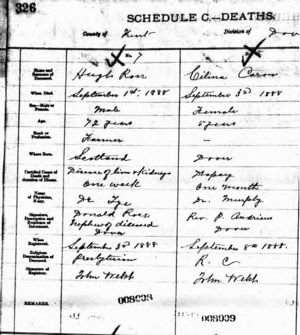 326
SCHEDULE C.—DEATHS.
County of Kent
Division of Dov
No. 7
Name and Surname of Deceased.
Hugh Ross
Celina Caron
When Died.
September 1st 1888
September 3rd 1888
Sex—Male or Female.
Male
Female
Age.
72 years
5 years
Rank or Profession.
Farmer
—
Where Born.
Scotland
Dover
Certified Cause of Death and duration of Illness.
Disease of liver & kidneys
one week
one month
Name of Physician, if any.
Dr. Tye
Dr. Murphy
Signature, Description and Residence of Informant.
Donald Ross
nephew of diseased
Dover
Rev. P. Andrieux
Dover
When Registered.
September 3rd 1888
September 8th 1888.
Religious Denomination of Deceased.
Presbyterian
R. C
Signature of Registrar.
John Webb
John Webb
REMARKS.
008938
008939